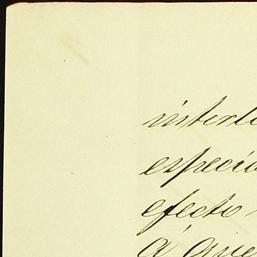 interlo
especia
efecto
á que